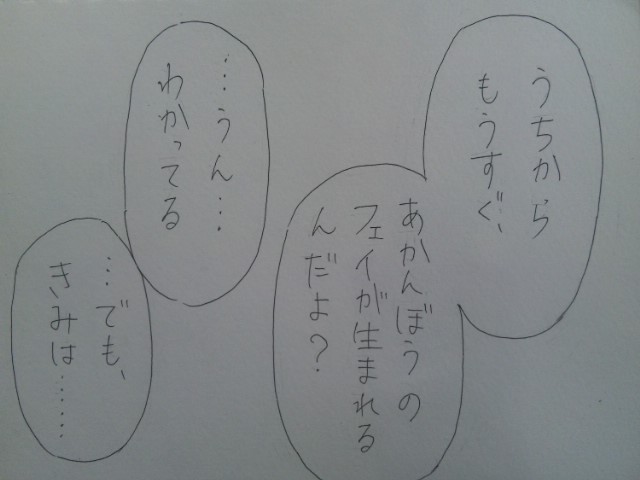 うちから
もうすぐ、
あかんぼうの
フェイが生まれる
んだよ？
…うん…
わかってる
…でも、
きみは……